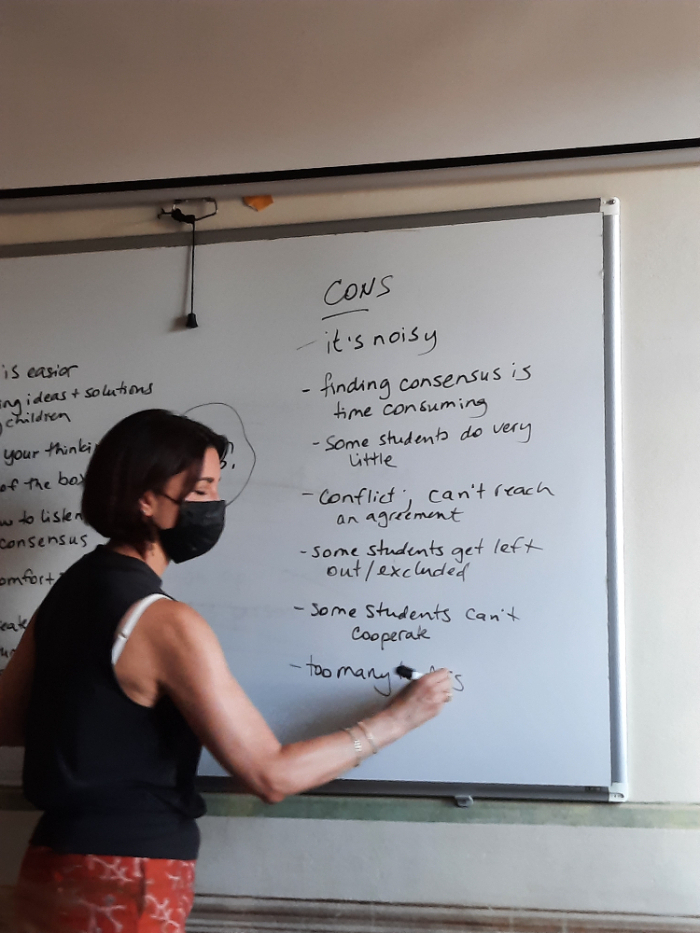 is easier
ideas + solutions
children
your
of the box
to listen
consensus
CONS
- it's noisy
- finding consensus is
time consuming
- Some students do very
little
- Conflict; can't reach
an agreement
- some students get left
out/excluded
- some students can't
cooperate
- too many